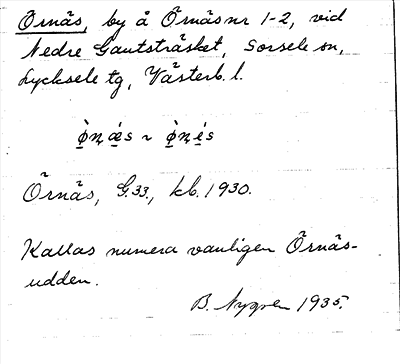 Örnäs, by å Örnäs nr 1-2, vid
Nedre Gautsträsket, Sorsele sn,
Lycksele tg, Västerb. l.
ø̀ṇǽs ~ ø̀ṇés
Örnäs, G.33., kb. 1930.
Kallas numera vanligen Örnäs-
udden.
B. Nygren 1935.